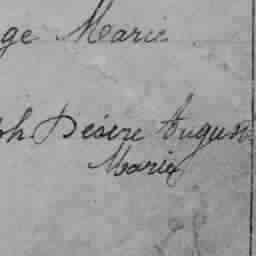 ge Marie
ph Désiré August
Marie